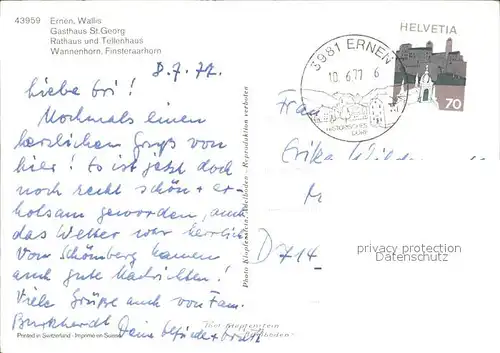 43959 Ernen, Wallis
Gasthaus St. Georg
Rathaus und Tellenhaus
Wannenhorn, Finsteraarhorn
8.7.77.
Liebe Eri!
Nochmals einen
herzlichen Gruss von
hier! Es ist jetzt doch
noch recht schön + er-
holsam geworden, auch
das Wetter war herrlich.
Von Schömberg kamen
auch gute Nachrichten!
Viele Grüße auch von Fam.
Burkhardt Deine
Printed in Switzerland - Imprimé en Suisse
Photo Klopfenstein, Adelboden - Reproduktion verboten
Photo Klopfenstein
Adelboden
3981 ERNEN
10.6.77 6
HISTORISCHES
DORF
HELVETIA
70
Frau
Erika
D 714
privacy protection
Datenschutz